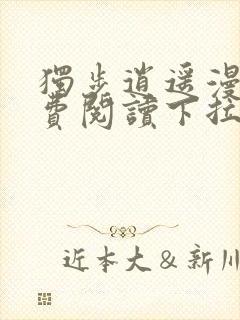 獨步逍遥漫
費閱讀下拉
近本大&新川